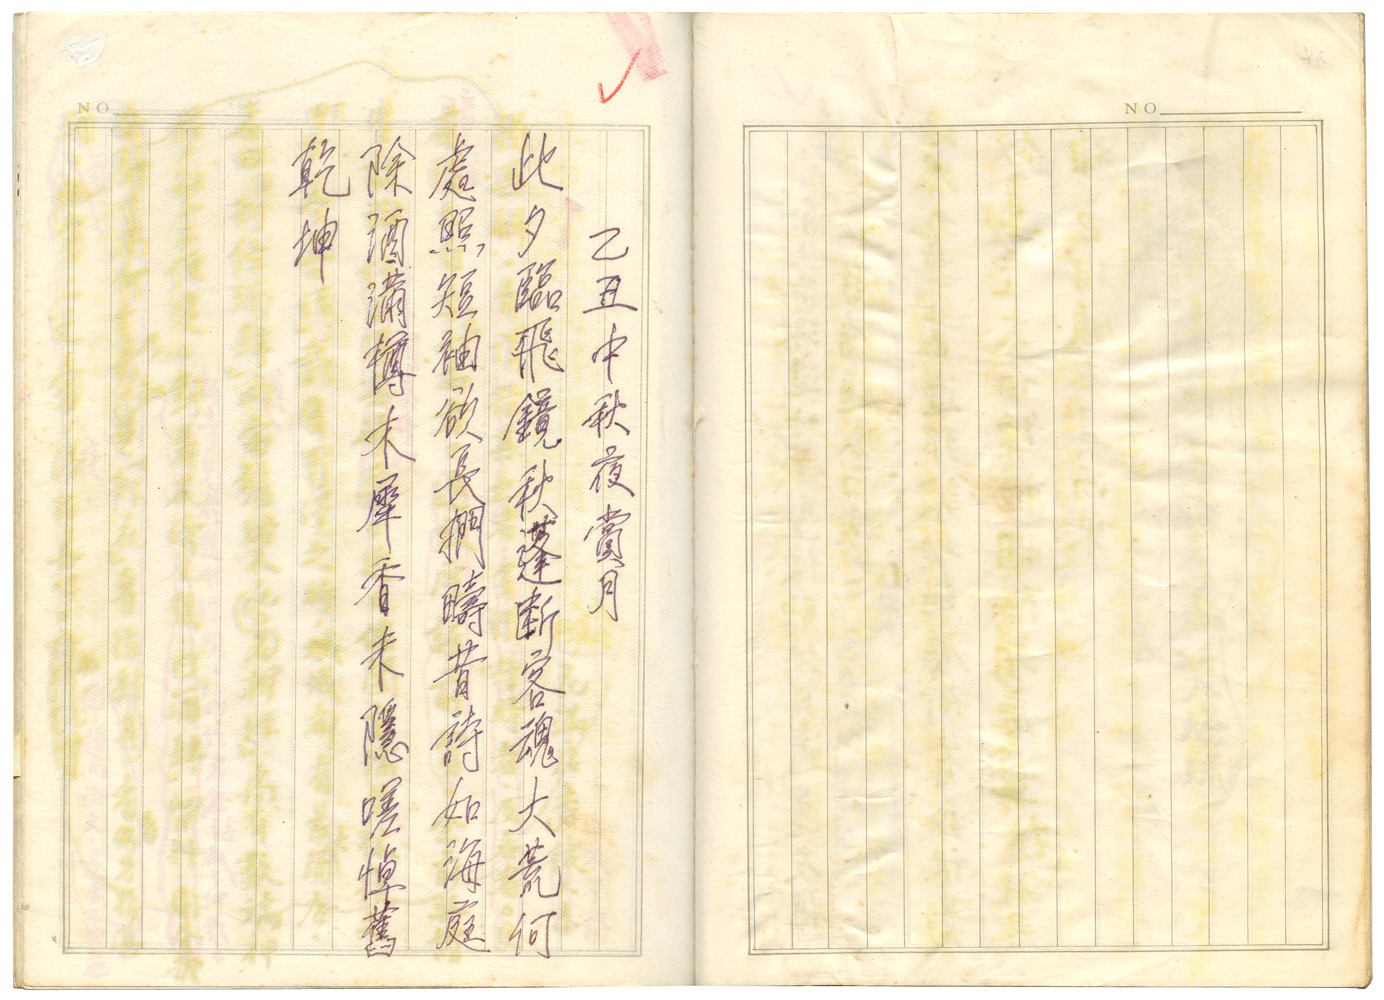 NO
NO
乙丑中秋夜賞月
此夕臨飛鏡秋蓬断客魂大荒何
處照短袖欲長捫疇昔詩如海庭
除酒滿樽木犀香未隱嗟悼舊
乾坤